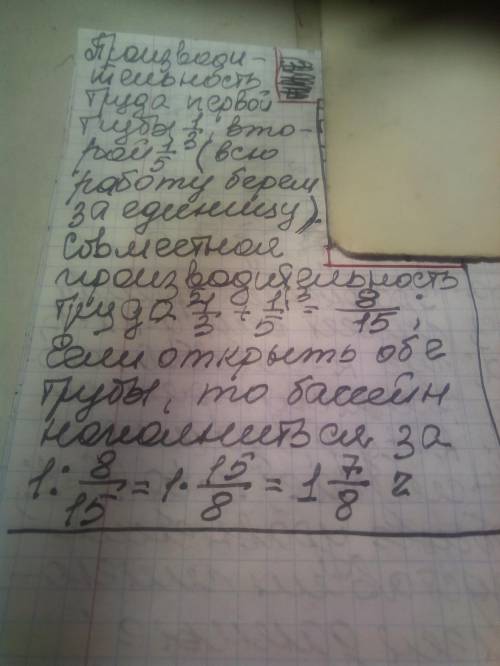 Производи-
тельность
труда первой
трубы 1/3, вто-
рой 1/5 (всю
работу берем
за единицу).
Совместная
производительность
труда 1/3 + 1/5 = 8/15;
Если открыть обе
трубы, то бассейн
наполниться за
1: 8/15 = 1 · 15/8 = 1 7/8 ч